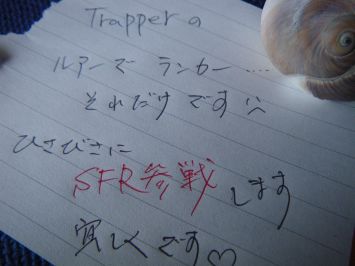 Trapperの
ルアーで ランカー....
それだけです^^
ひさびさに
SFR参戦します
宜しくです♡